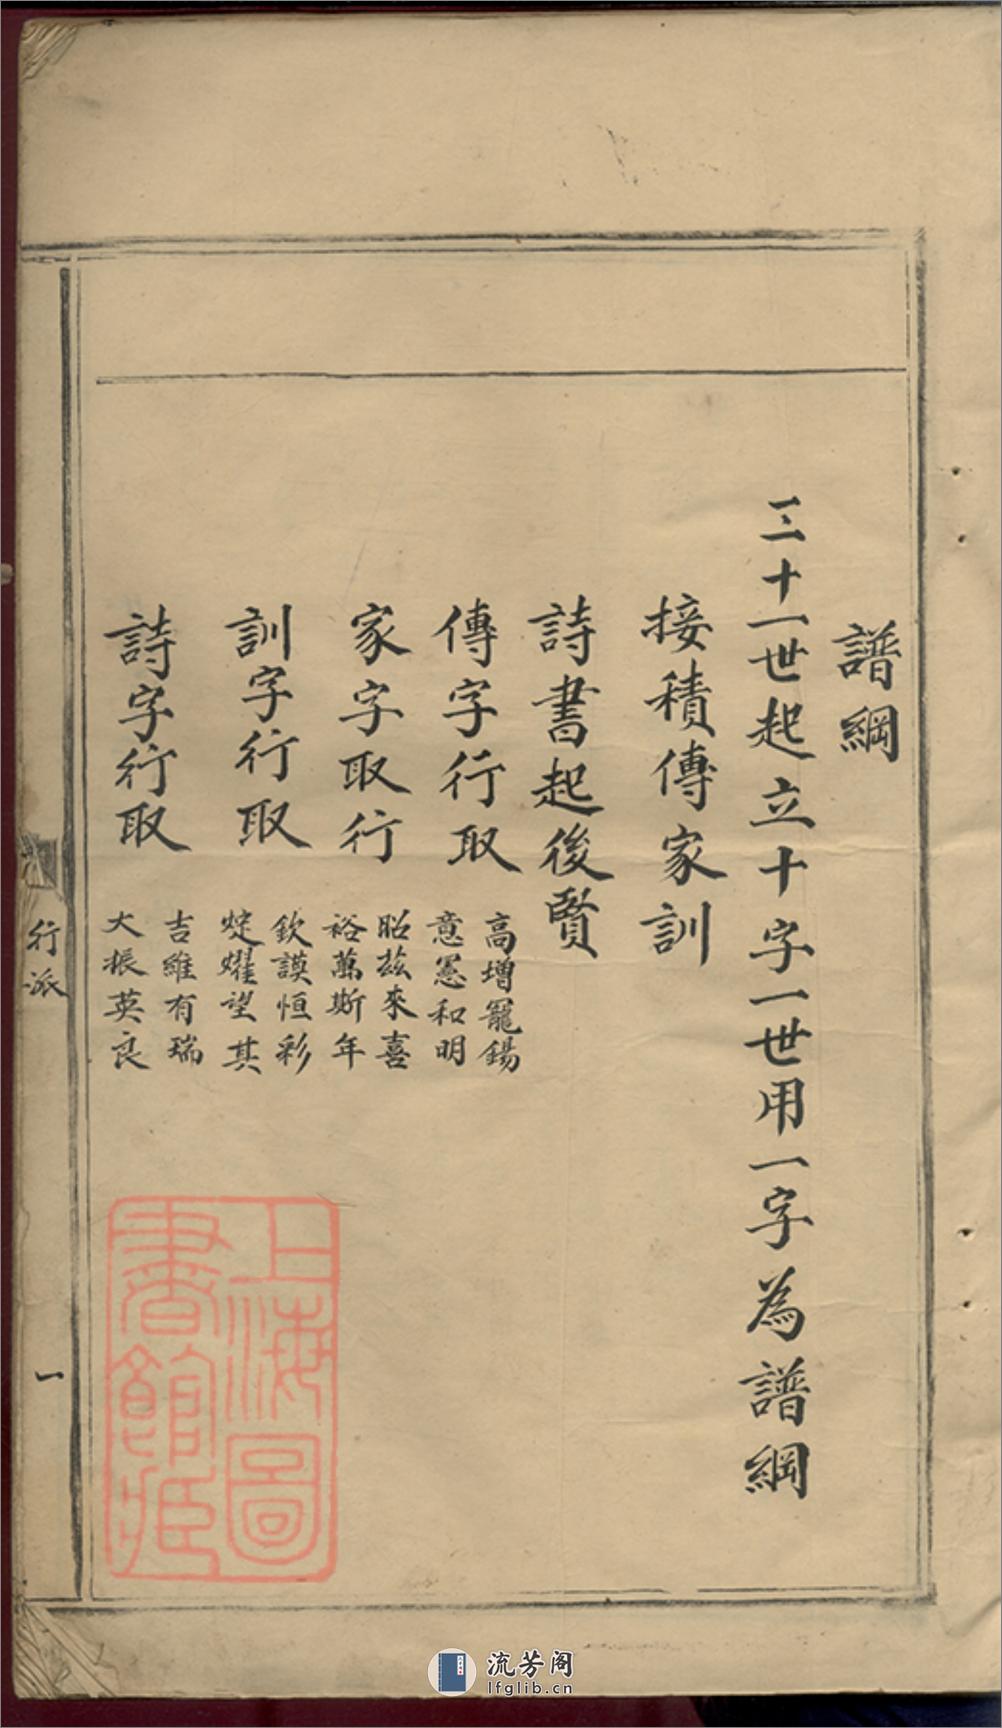 譜綱
三十一世起立十字一世用一字為譜綱
接積傳家訓
詩書起後賢
傳字行取
高增寵錫
意憲和明
家字取行
昭茲來喜
裕萬斯年
訓字行取
欽謨恒彩
燿望其
詩字行取
吉維有瑞
大振英良
行派
一
上海圖
書館藏
流芳阁
lfglib.cn